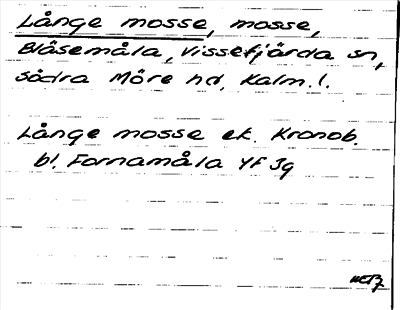 Långe mosse, mosse,
Blåsemåla, Vissefjärda sn,
Södra Möre hd, Kalm. l.
Långe mosse ek. Kronob.
bl. Fornamåla YF Jg